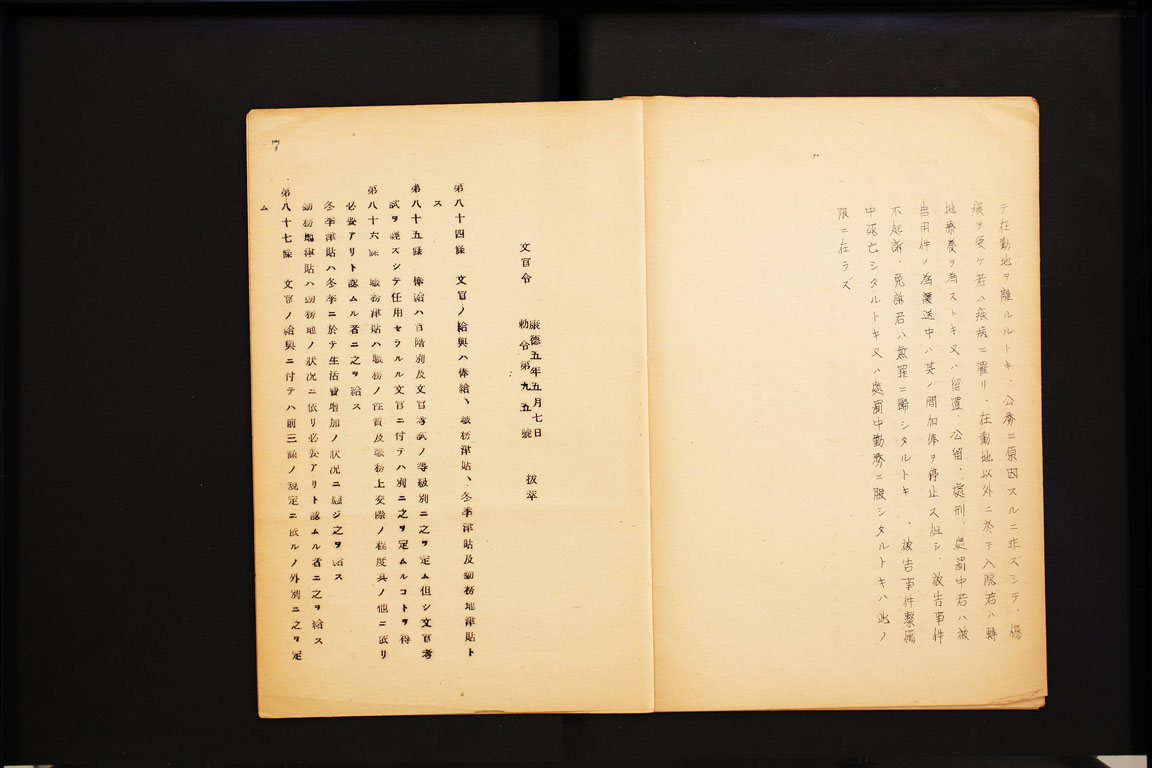 テ在勤地ヲ離ルルトキ、公務ニ原因スルニ非ズシテ、傷
痍ヲ受ケ若ハ疾病ニ罹リ、在勤地以外ニ於テ入院若ハ轉
地療養ヲ為ストキ又ハ留置、公留、處刑、處罰中若ハ被
告用件ノ為護送中ハ其ノ間加俸ヲ停止ス但シ、被告事件
不起訴、免訴若ハ無罪ニ歸シタルトキ、被告事件繫屬
中死亡シタルトキ又ハ處罰中勤務ニ服シタルトキハ此ノ
限ニ在ラズ
文官令
康德五年五月七日
勅令第九五號
拔萃
第八十四條 文官ノ給與ハ俸給、職務津貼、冬季津貼及勤務地津貼ト
ス
第八十五條 俸給ハ官階別及文官考試ノ等級別ニ之ヲ定ム但シ文官考
試ヲ經ズシテ任用セラルル文官ニ付テハ別ニ之ヲ定ムルコトヲ得
第八十六條 職務津貼ハ職務ノ性質及職務上交際ノ程度其ノ他ニ依リ
必要アリト認ムル者ニ之ヲ給ス
冬季津貼ハ冬季ニ於テ生活費增加ノ狀況ニ應ジ之ヲ給ス
勤務地津貼ハ勤務地ノ狀況ニ依リ必要アリト認ムル者ニ之ヲ給ス
第八十七條 文官ノ給與ニ付テハ前三條ノ規定ニ依ルノ外別ニ之ヲ定
ム
7